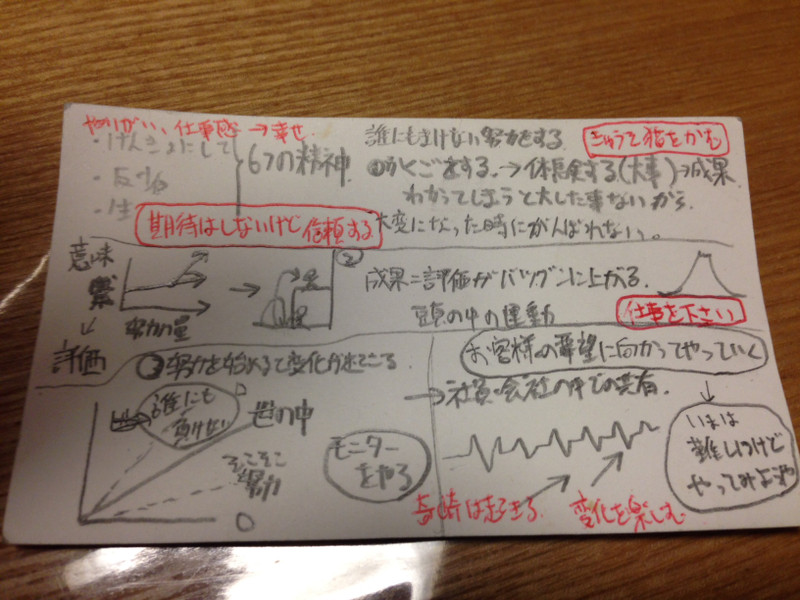 やりがい、仕事感→幸せ
・けんきょにして
・反省
・生
6つの精神
期待はしないけど信頼する
誰にもまけない努力をする
きゅうそ猫をかむ
①かくごをする。→体験する(大事)→成果
わかってしまうと大した事ないから
大変になった時にがんばれない。
意味
↓
評価
努力量
→
②
成果=評価がバツグンに上がる
頭の中の運動
仕事を下さい
③努力を始めると変化が出てくる
誰にも
負けない
世の中
そこそこ
努力
モニター
をやる
お客様の要望に向かってやっていく
→社員・会社の中での共有。
いまは
難しいけど
やってみよや
奇跡は起きる
変化を楽しむ